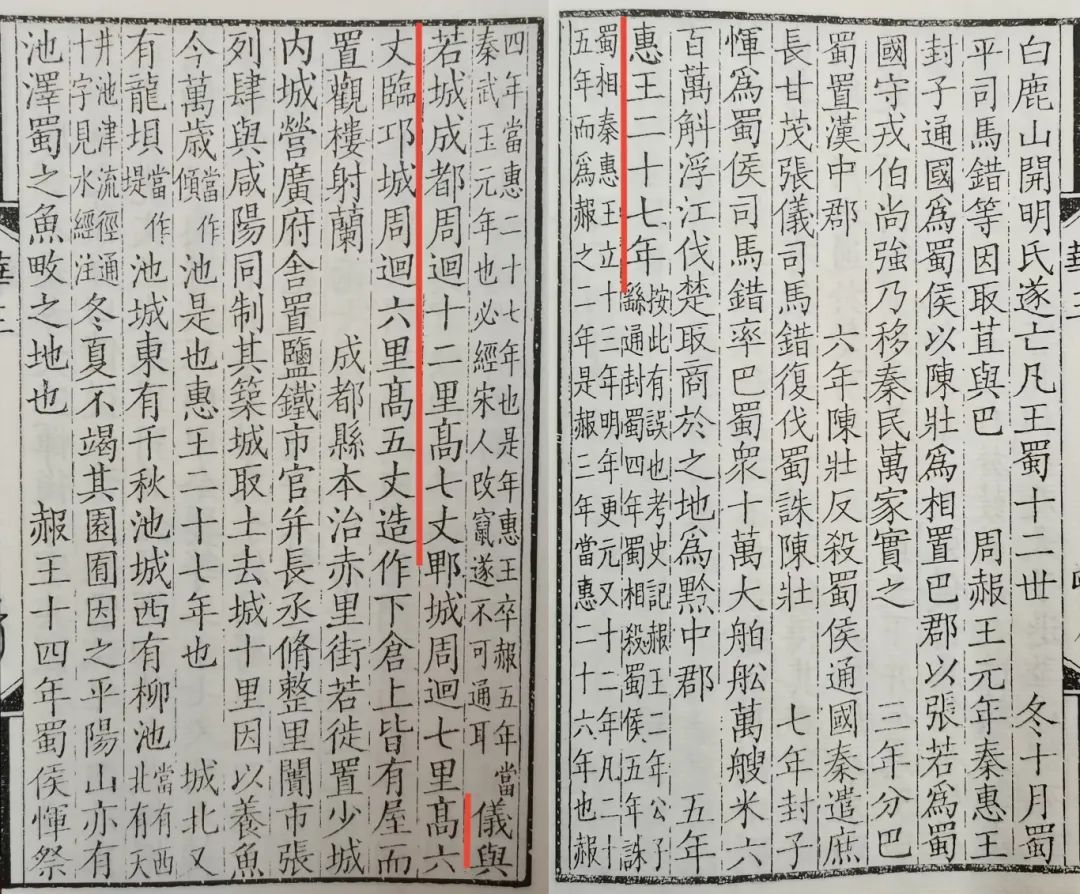 白鹿山開明氏遂亡凡王蜀十二世　冬十月蜀
平司馬錯等因取苴與巴　周赧王元年秦惠王
封子通國爲蜀侯以陳壯爲相置巴郡以張若爲蜀
國守戎伯尚強乃移秦民萬家實之　三年分巴
蜀置漢中郡　六年陳壯反殺蜀侯通國秦遣庶
長甘茂張儀司馬錯復伐蜀誅陳壯　七年封子
惲爲蜀侯司馬錯率巴蜀衆十萬大舶舩萬艘米六
百萬斛浮江伐楚取商於之地爲黔中郡　五年
惠王二十七年按此有誤也考史記赧王二年公子
繇通封蜀四年蜀相殺蜀侯五年誅
蜀相秦惠王立十三年明年更元又十二年凡二十
五年而爲赧之二年是赧三年當惠二十六年也赧
四年當惠二十七年也是年惠王卒赧五年當
秦武王元年也必經宋人改竄遂不可通耳儀與
若城成都周迴十二里高七丈郫城周迴七里高六
丈臨邛城周迴六里高五丈造作下倉上皆有屋而
置觀樓射蘭　成都縣本治赤里街若徙置少城
内城營廣府舍置鹽鐵市官并長丞脩整里闠市張
列肆與咸陽同制其築城取土去城十里因以養魚
今萬歲當作傾池是也惠王二十七年也　城北又
有龍壩當作堤池城東有千秋池城西有柳池當有西北有天
井池津流徑通十字見水經注冬夏不竭其園囿因之平陽山亦有
池澤蜀之魚畋之地也　赧王十四年蜀侯惲祭